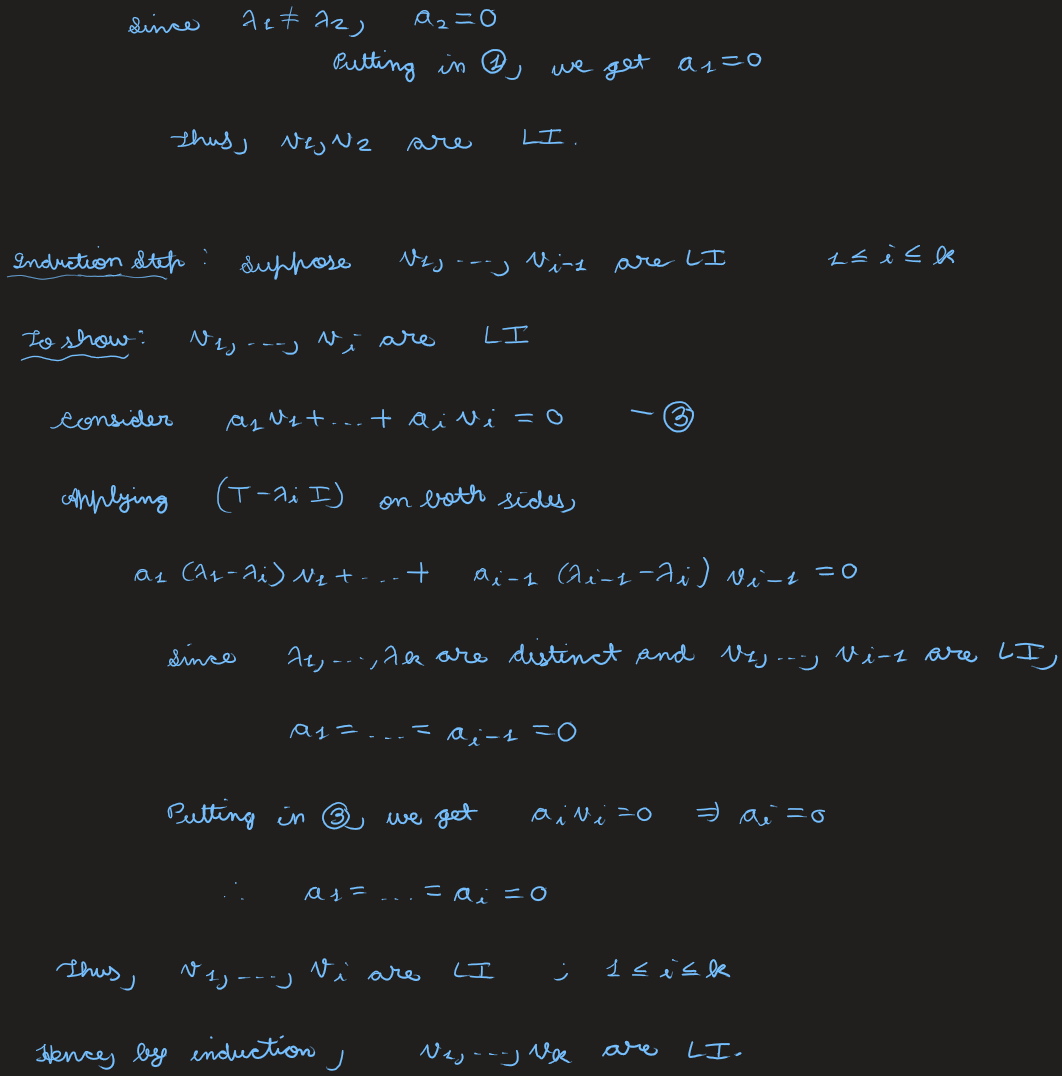 Since λ₁ ≠ λ₂, a₂ = 0
Putting in ①, we get a₁ = 0
Thus, v₁, v₂ are LI.
Induction Step : Suppose v₁, ---, vᵢ₋₁ are LI 1 ≤ i ≤ k
To show: v₁, ---, vᵢ are LI
Consider a₁v₁ + ... + aᵢvᵢ = 0 - ③
Applying (T - λᵢ I) on both sides,
a₁ (λ₁ - λᵢ) v₁ + ... + aᵢ₋₁ (λᵢ₋₁ - λᵢ) vᵢ₋₁ = 0
Since λ₁, ..., λₖ are distinct and v₁, ---, vᵢ₋₁ are LI,
a₁ = ... = aᵢ₋₁ = 0
Putting in ③, we get aᵢvᵢ = 0 ⇒ aᵢ = 0
∴ a₁ = ... = aᵢ = 0
Thus, v₁, ---, vᵢ are LI ; 1 ≤ i ≤ k
Hence, by induction, v₁, ---, vₖ are LI.